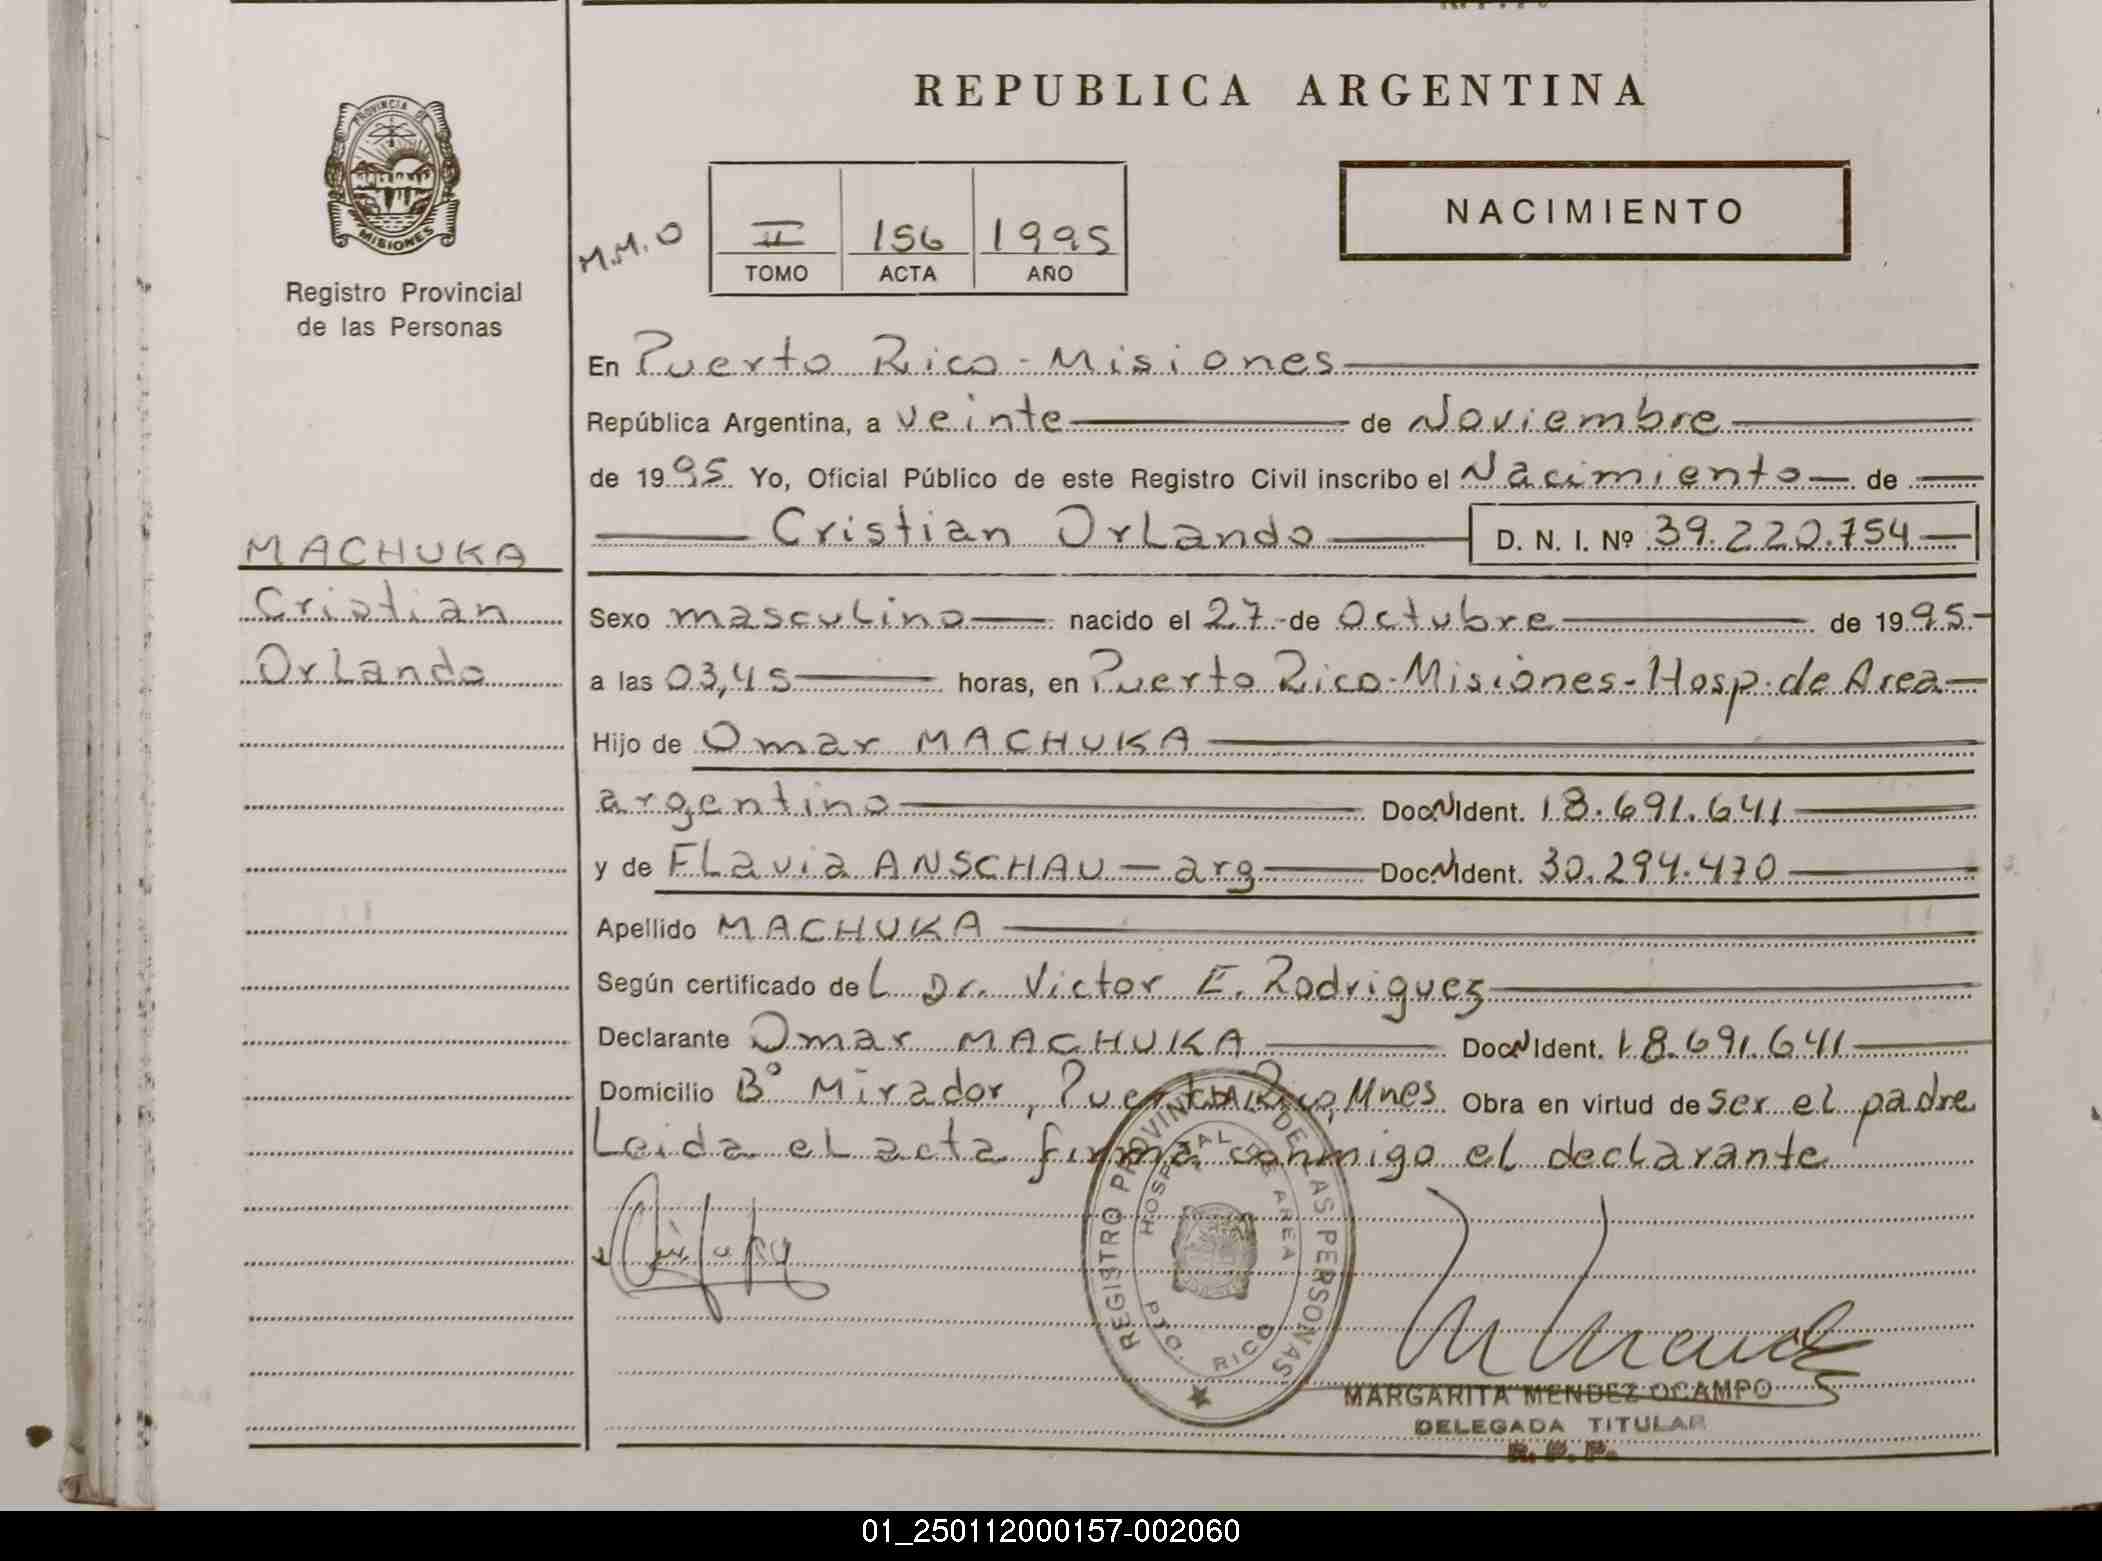 REPUBLICA ARGENTINA
PROVINCIA DE
MISIONES
Registro Provincial
de las Personas
M.M.O
II 156 1995
TOMO ACTA AÑO
NACIMIENTO
En Puerto Rico - Misiones
República Argentina, a veinte de Noviembre
de 1995 Yo, Oficial Público de este Registro Civil inscribo el Nacimiento de
Cristian Orlando D. N. I. Nº 39.220.754
MACHUKA
Cristian
Orlando
Sexo masculino nacido el 27 de Octubre de 1995
a las 03,45 horas, en Puerto Rico - Misiones - Hosp. de Area
Hijo de Omar MACHUKA
argentino Doc. N Ident. 18.691.641
y de Flavia ANSCHAU - arg Doc. N Ident. 30.294.470
Apellido MACHUKA
Según certificado del Dr. Victor E. Rodriguez
Declarante Omar MACHUKA Doc. N Ident. 18.691.641
Domicilio Bº Mirador, Puerto Rico, Mnes Obra en virtud de ser el padre
Leida el acta firma conmigo el declarante
REGISTRO PROVINCIAL DE LAS PERSONAS
HOSPITAL DE AREA
PTO. RICO
MARGARITA MENDEZ OCAMPO
DELEGADA TITULAR
R. P. P.
01_250112000157-002060